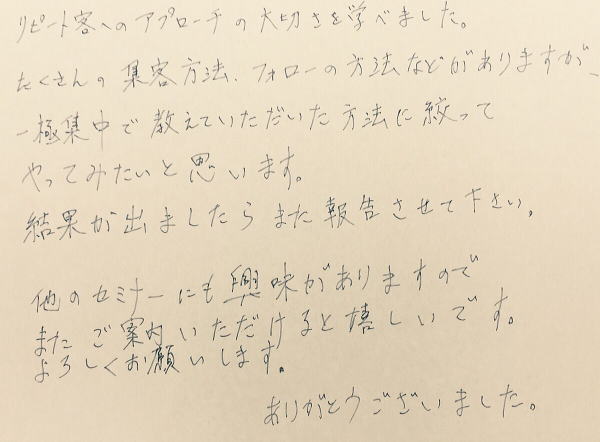 リピート客へのアプローチの大切さを学べました。
たくさんの集客方法、フォローの方法などがありますが、
一極集中で教えていただいた方法に絞って
やってみたいと思います。
結果が出ましたらまた報告させて下さい。
他のセミナーにも興味がありますので
またご案内いただけると嬉しいです。
よろしくお願いします。
ありがとうございました。